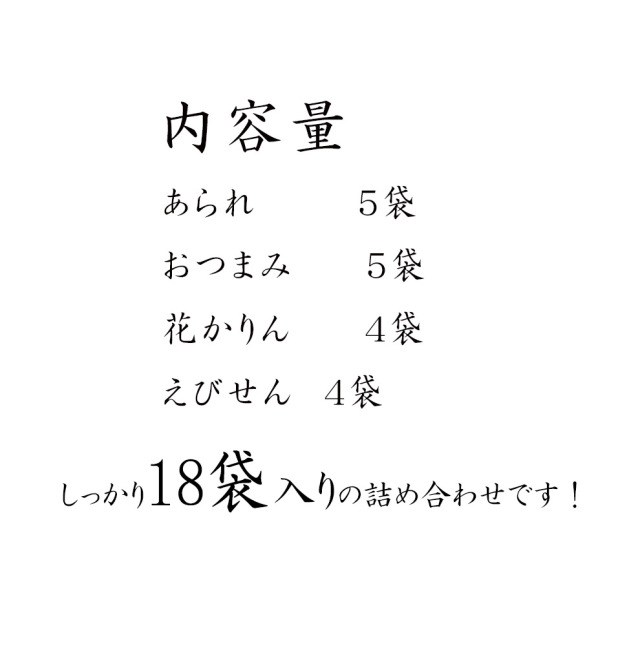 内容量
あられ　５袋
おつまみ　５袋
花かりん　４袋
えびせん　４袋
しっかり18袋入りの詰め合わせです！